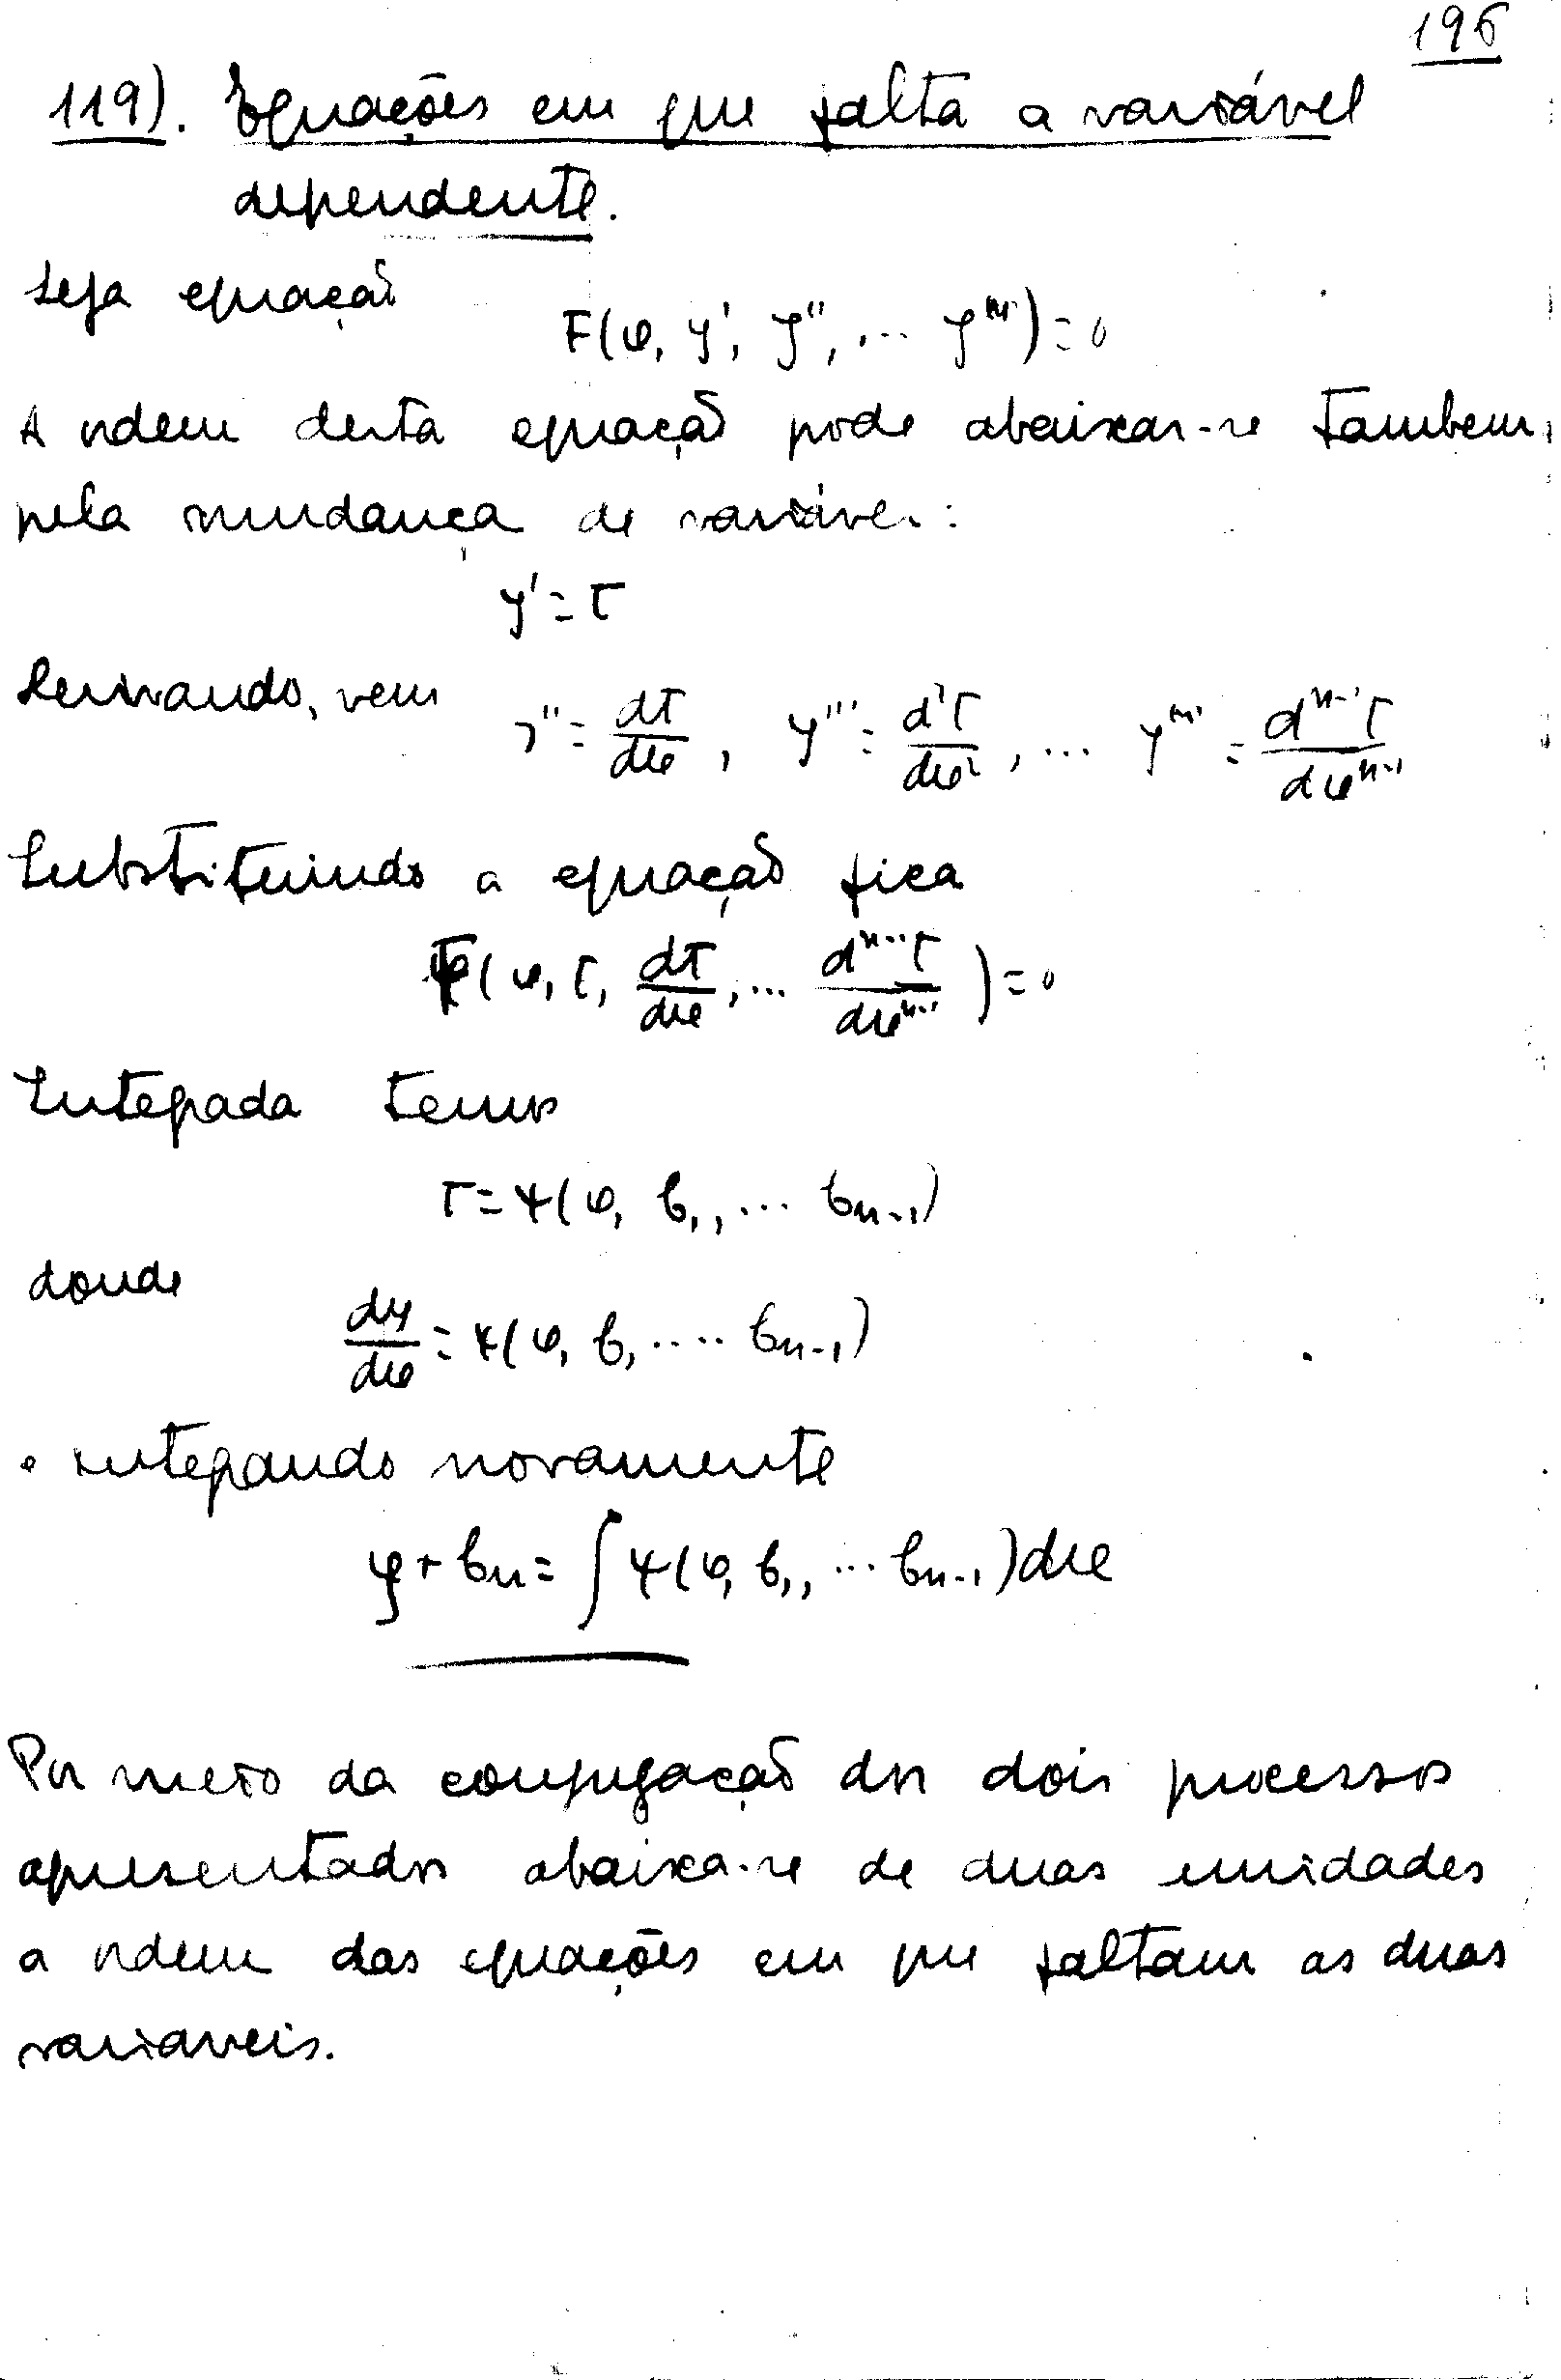 196
119). Equações em que falta a variável
dependente.
Seja equação
F(x, y', y'', ... yⁿ⁾) = 0
A ordem desta equação pode abaixar-se tambem
pela mudança de variável:
y' = t
Derivando, vem
y'' = dt/dx, y''' = d²t/dx², ... yⁿ⁾ = dⁿ⁻¹t/dxⁿ⁻¹
Substituindo a equação fica
F(x, t, dt/dx, ... dⁿ⁻¹t/dxⁿ⁻¹) = 0
Integrada temos
t = ψ(x, b₁, ... bₙ₋₁)
donde
dy/dx = ψ(x, b₁ .... bₙ₋₁)
e integrando novamente
y + bₙ = ∫ ψ(x, b₁, ... bₙ₋₁) dx
Por meio da conjugação dos dois processos
apresentados abaixa-se de duas unidades
a ordem das equações em que faltam as duas
variaveis.